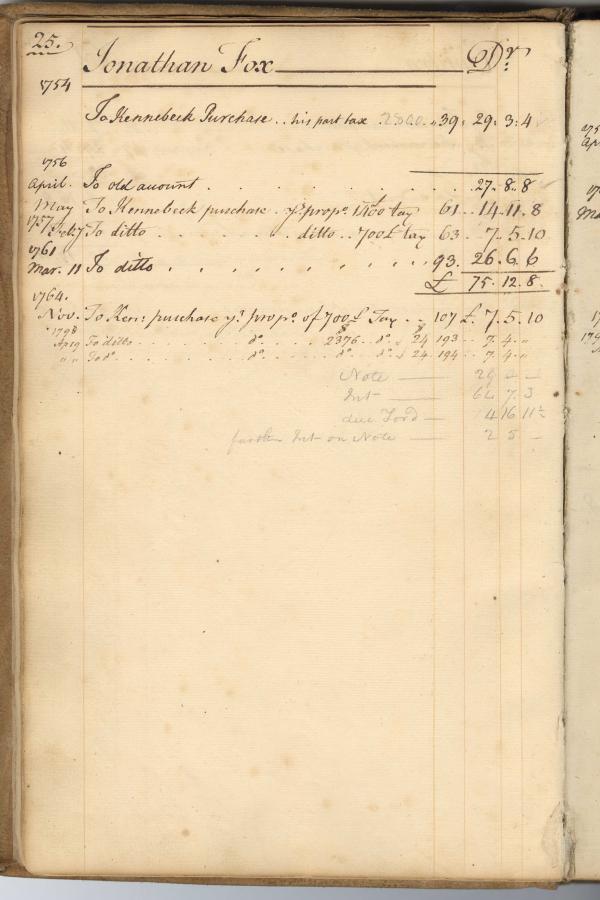 25.
Jonathan Fox Dr.
1754
To Kennebeck Purchase .. his part tax 2800. 39. 29. 3. 4
1756
April. To old account . . . . . . 27. 8. 8
May To Kennebeck purchase . yr. propo. 1400£ tax 61 .. 14. 11. 8
1757 July To ditto . . . . . . ditto .. 700£ tax 63 .. 7. 5. 10
1761
Mar. 11 To ditto . . . . . . . . . 93. 26. 6. 6
£ 75. 12. 8.
1764.
Nov. To Ken: purchase yr. propo. of 700£ Tax .. 107 £. 7. 5. 10
1798
Apl 9 To ditto . . . . . do. . . . 2376 .. do. .. 24 193 .. 7. 4. "
" " To do. . . . . . do. . . . do. .. 24. 194 .. 7. 4. "
Note — 29 — —
Int — 64 7. 3
due — 4 16 11½
further Int on Note — 2 5 —
1798